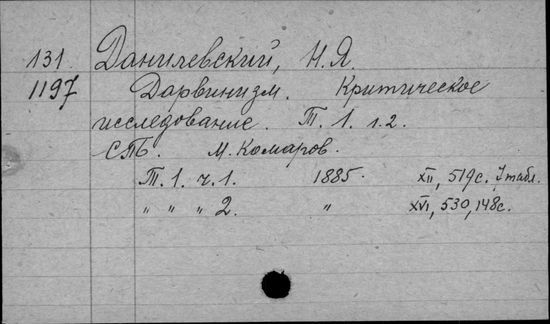 131 Данилевский, Н. Я.
1197 Дарвинизм. Критическое
исследование. Т. 1. ч. 2.
СПБ. М. Комаров.
Т. 1. ч. 1. 1885. XII, 519 с. 7 табл.
" " " 2. " XVI, 530, 148 с.